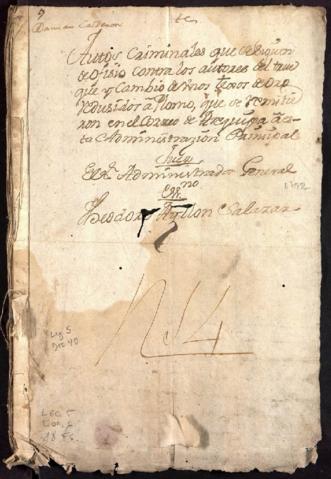 Damian Calderon
Autos Criminales que se siguen
de ofisio contra los autores del true
que y Cambio de unos texos de Oro
redusidos a Plomo, que se remitie
ron en el Correo de Arequipa a es
ta Administrazion Prinsipal
Juez
El Sr. Administrador General
1792
Essno
Theodoro Ayllon Salazar
N. 4
Leg 5
Doc 40
Leg. 5
18 fs.